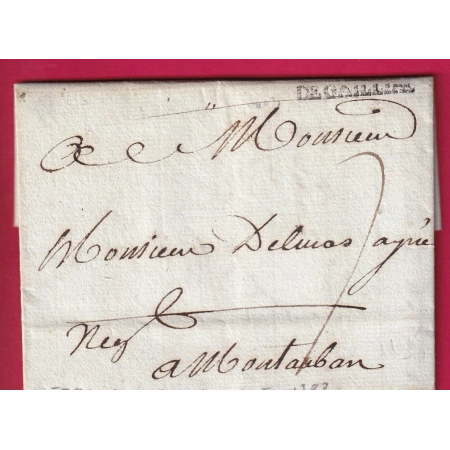 DE GAILLAC
A Monsieur
Monsieur Delmas ayné
Neg
a Montauban